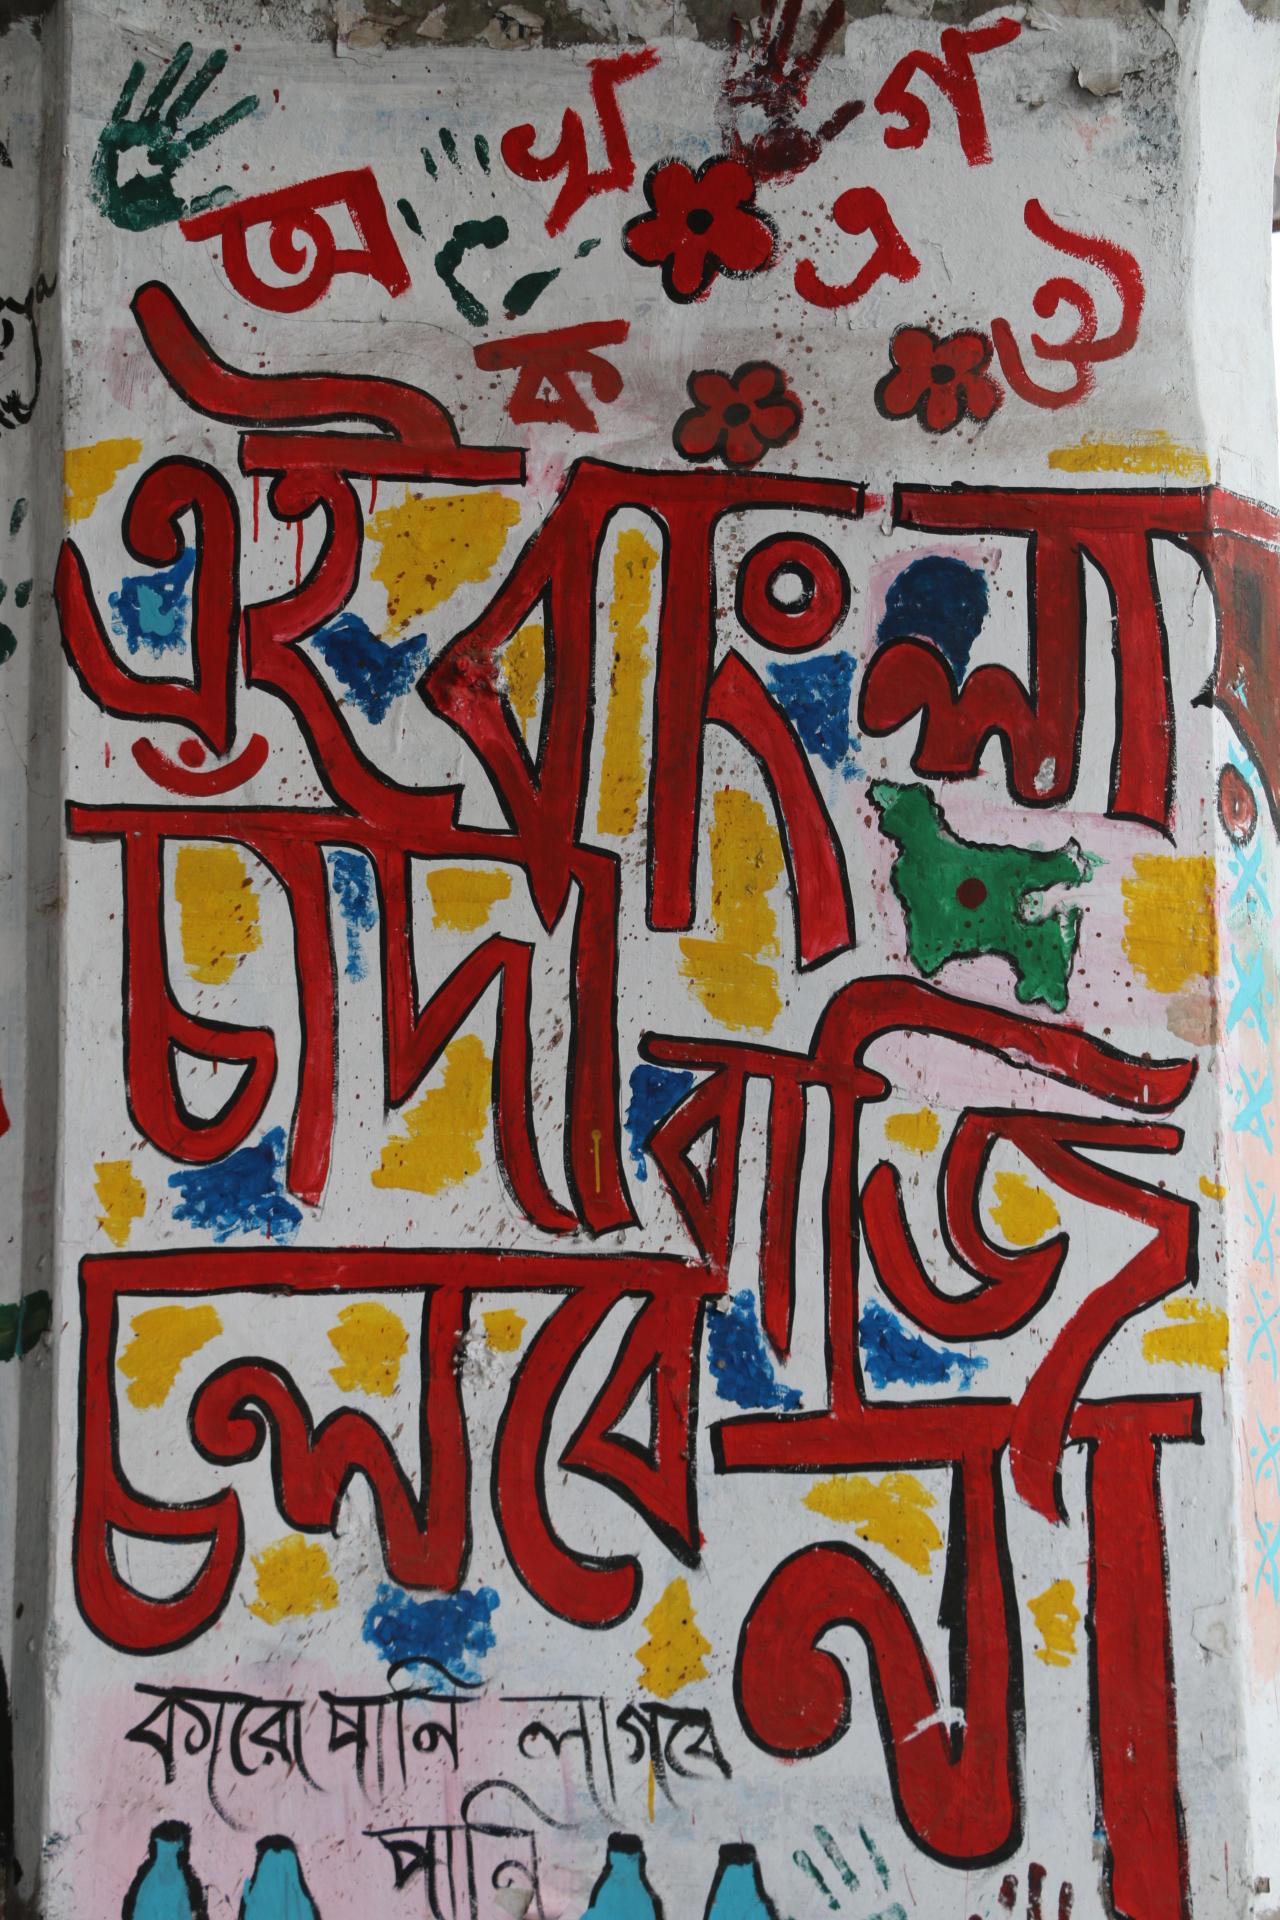 খ গ
অ এ ঐ
ক
এই বাংলায়
চাদাবাজি
চলবে না
কারো পানি লাগবে
পানি